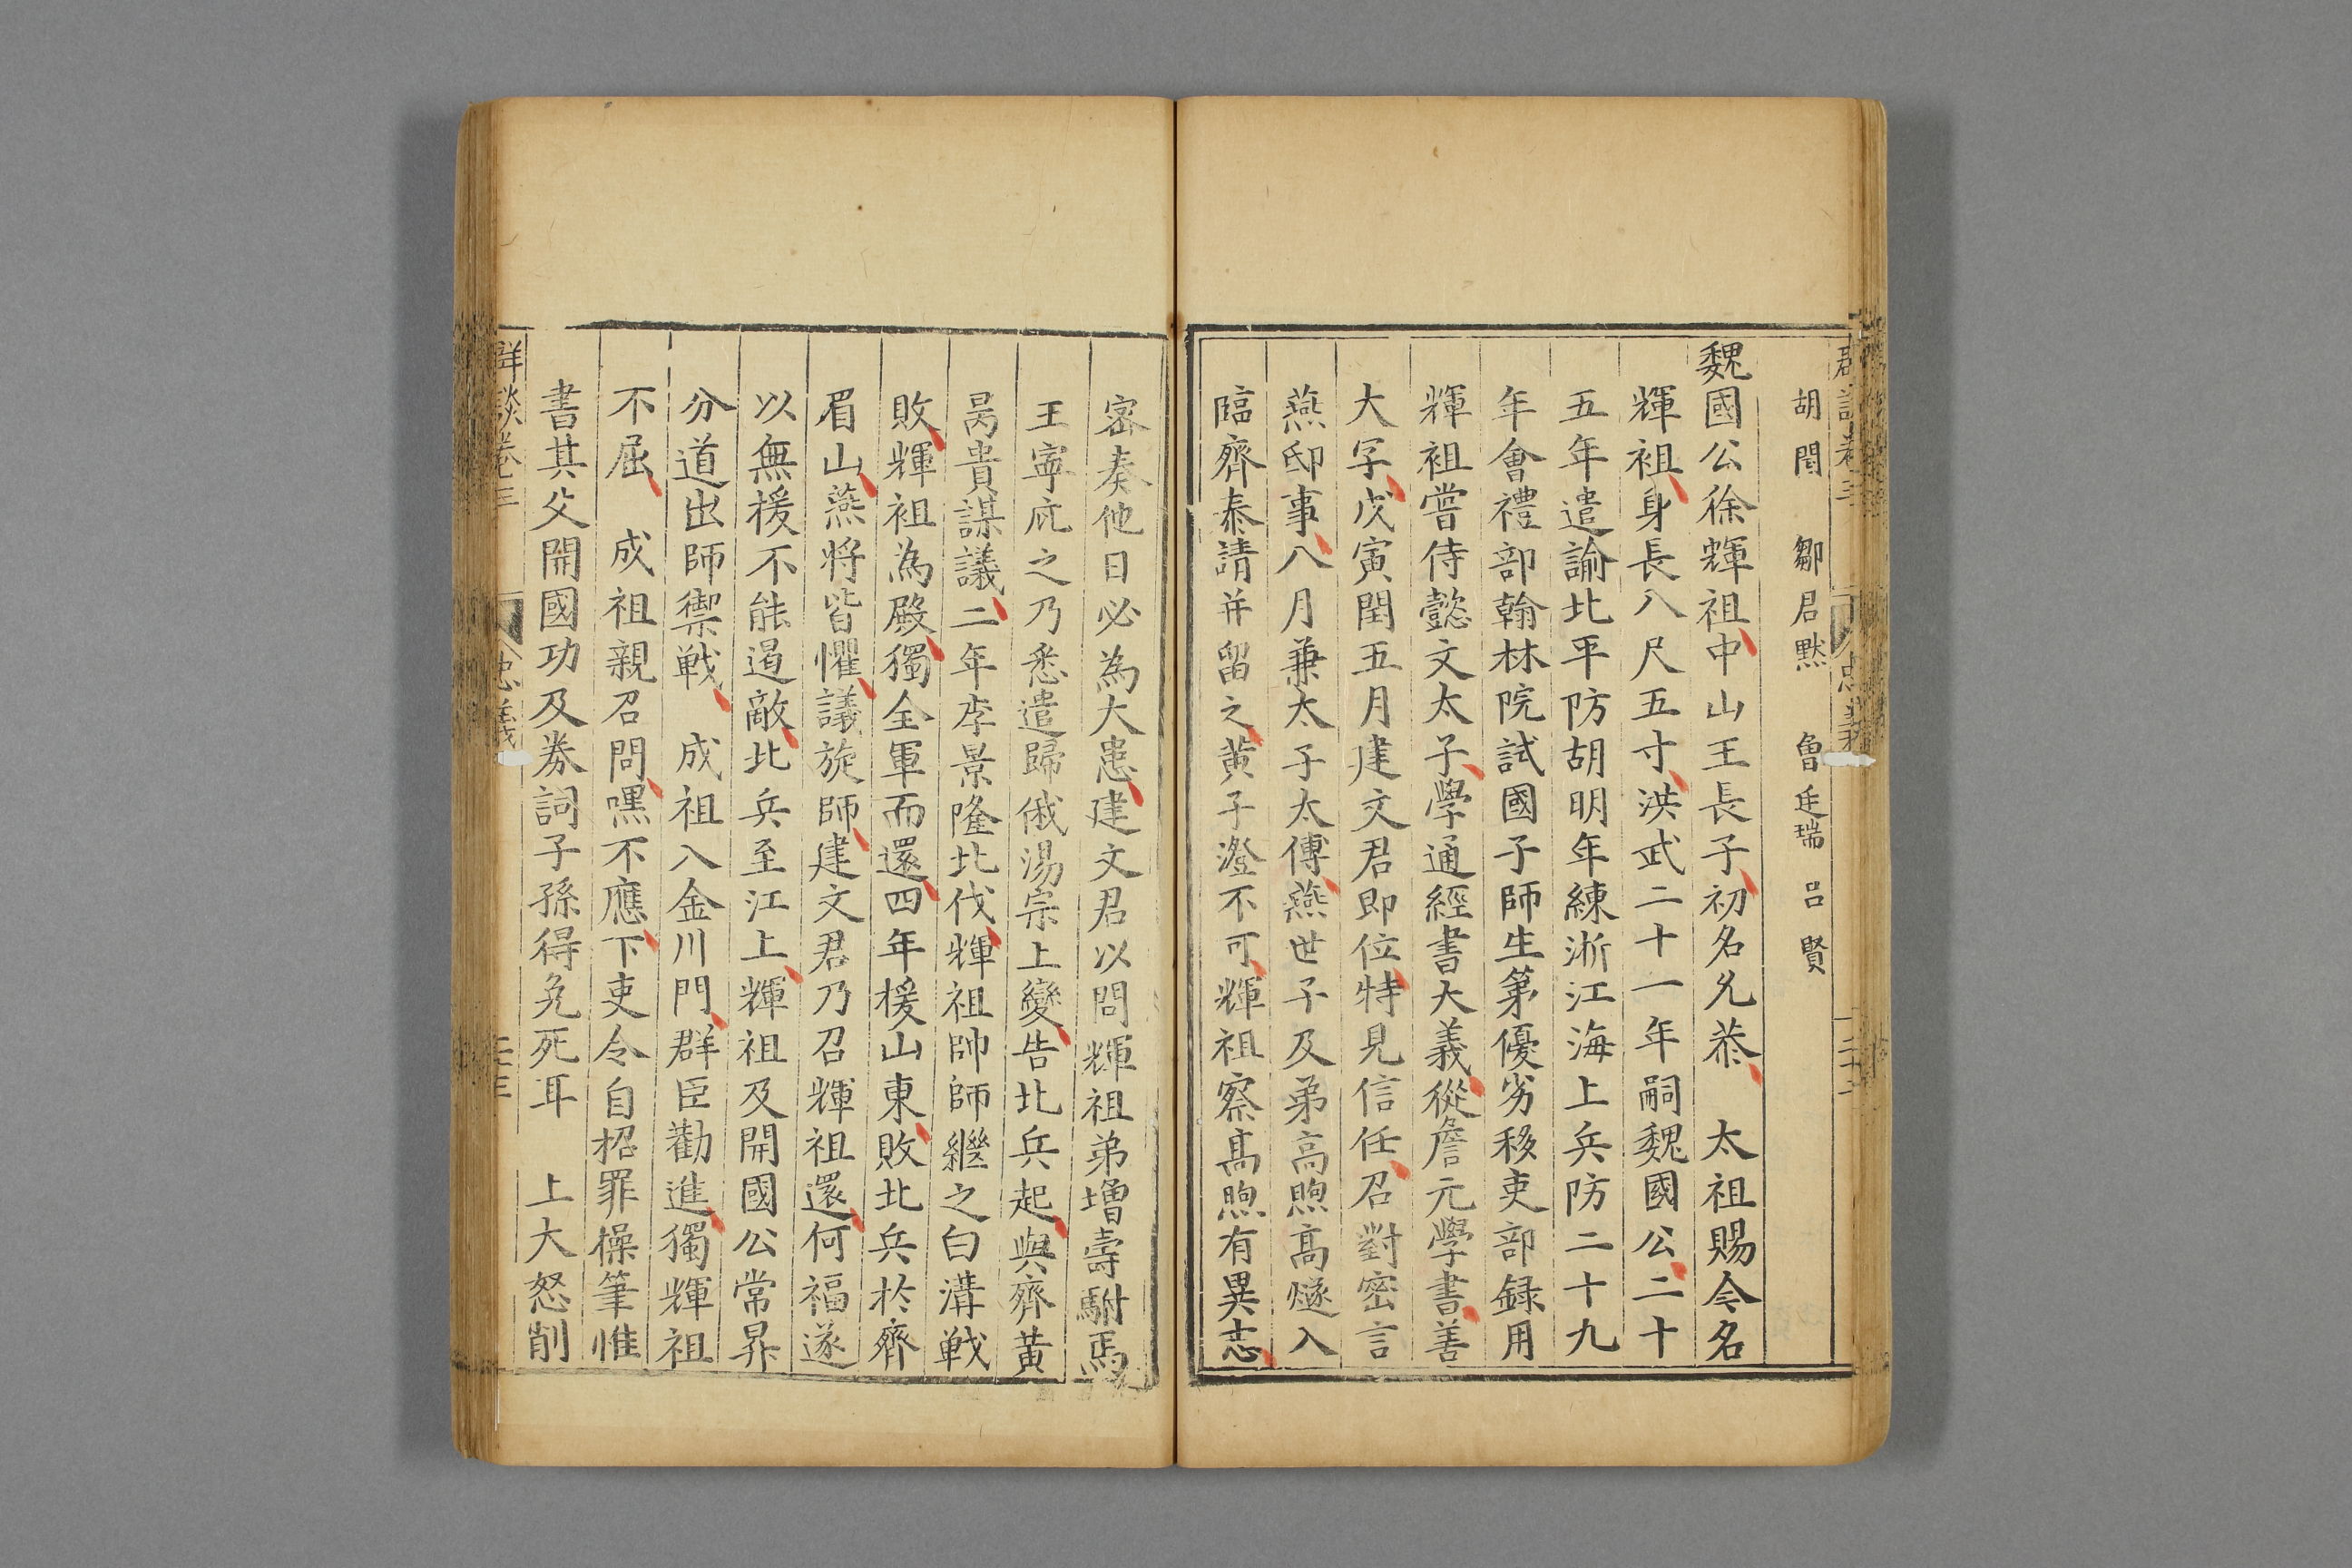 胡閏　鄒君黙　魯廷瑞　呂賢
魏國公徐輝祖中山王長子初名允恭　太祖賜今名
輝祖身長八尺五寸洪武二十一年嗣魏國公二十
五年遣諭北平防胡明年練浙江海上兵防二十九
年會禮部翰林院試國子師生第優劣移吏部録用
輝祖嘗侍懿文太子學通經書大義從詹元學書善
大字戊寅閏五月建文君即位特見信任召對密言
燕邸事八月兼太子太傅燕世子及弟高煦高燧入
臨齊泰請并留之黄子澄不可輝祖察高煦有異志
密奏他日必為大患建文君以問輝祖弟增壽駙馬
王寧庇之乃悉遣歸俄湯宗上變告北兵起與齊黄
昺貴謀議二年李景隆北伐輝祖帥師繼之白溝戰
敗輝祖為殿獨全軍而還四年援山東敗北兵於齊
眉山燕將皆懼議旋師建文君乃召輝祖還何福遂
以無援不能遏敵北兵至江上輝祖及開國公常昇
分道出師禦戰　成祖入金川門群臣勸進獨輝祖
不屈　成祖親召問嘿不應下吏令自招罪操筆惟
書其父開國功及券詞子孫得免死耳　上大怒削
群談卷三　忠義